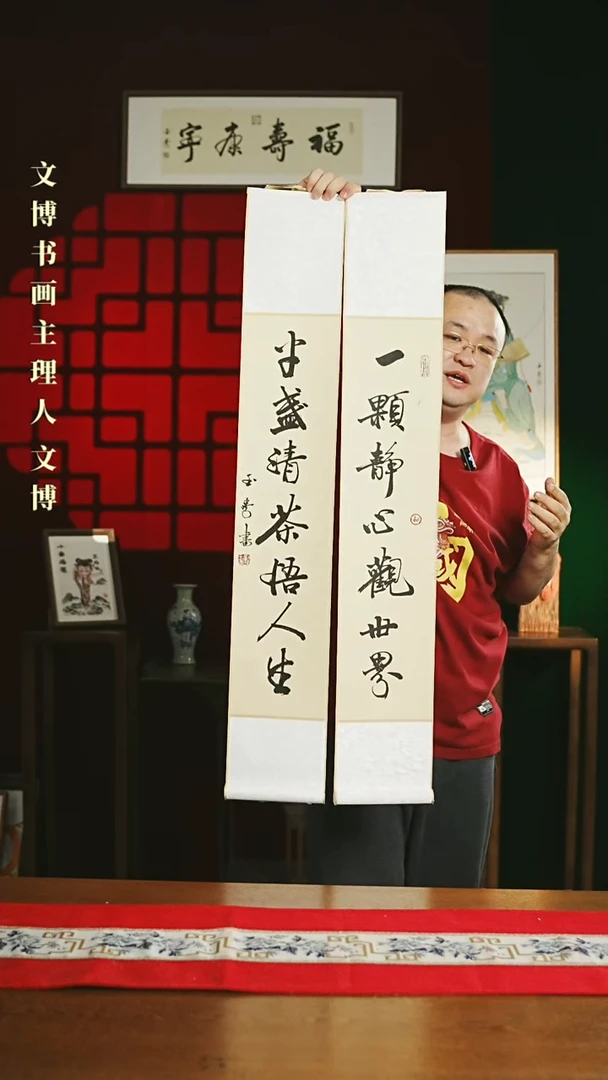 福壽康寧
文博书画主理人文博
一顆静心觀世界
半盏清茶悟人生
玉貴書
國